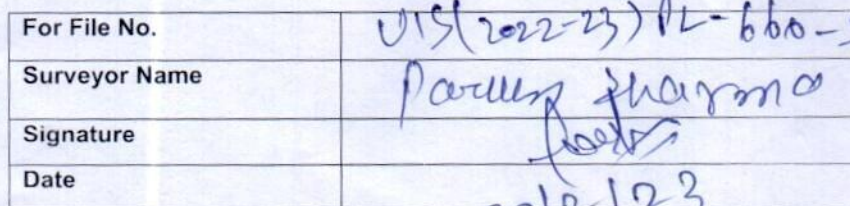 For File No. VIS(2022-23)PL-660-
Surveyor Name Parun Sharma
Signature
Date